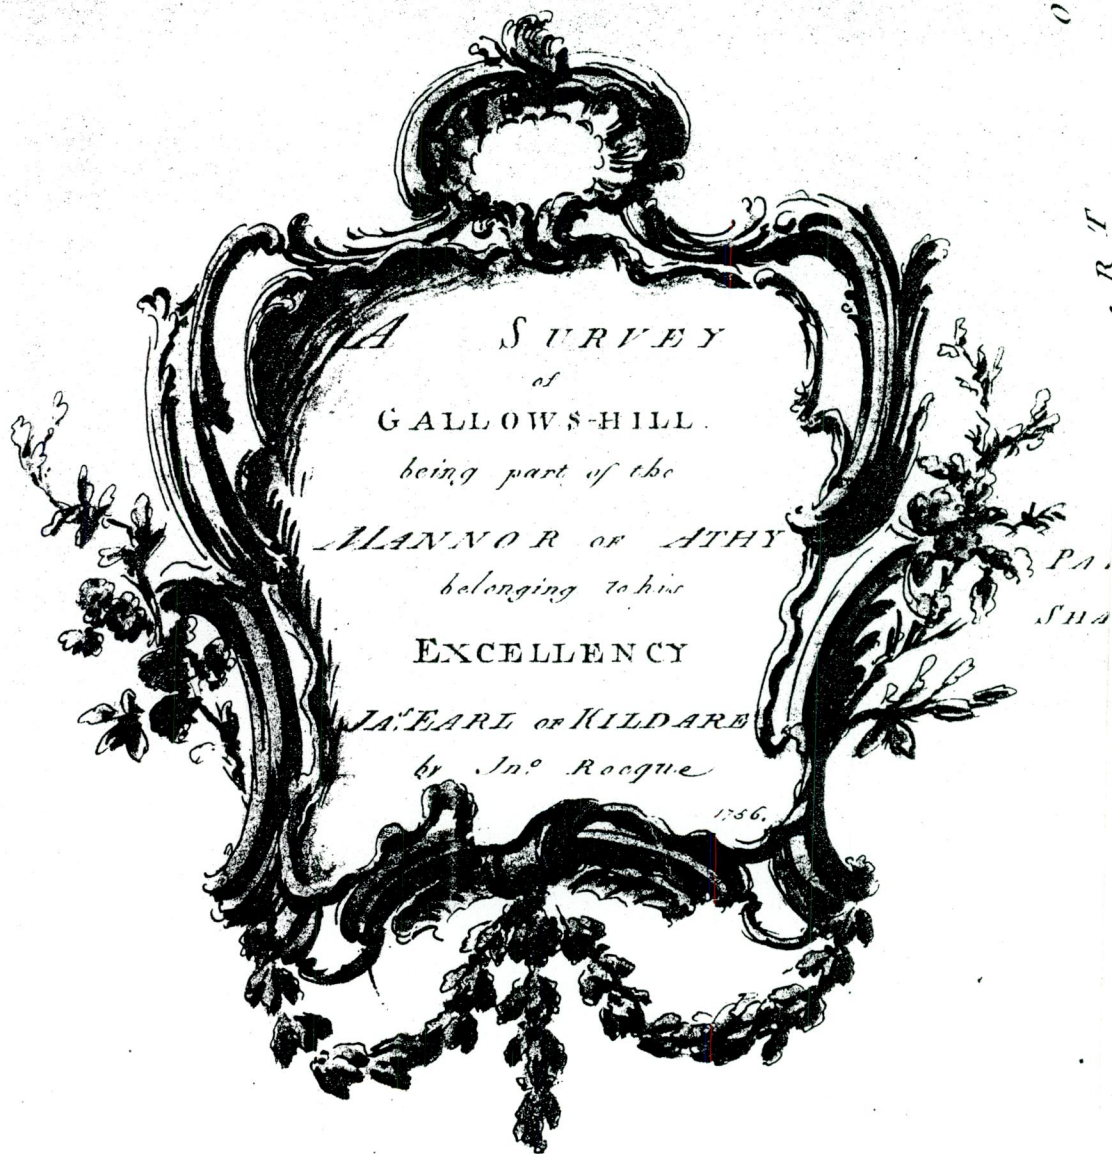 A SURVEY
of
GALLOWS-HILL.
being part of the
MANNOR OF ATHY
belonging to his
EXCELLENCY
JA.s EARL OF KILDARE
by Jn.o Rocque
1756.
PA
SHA